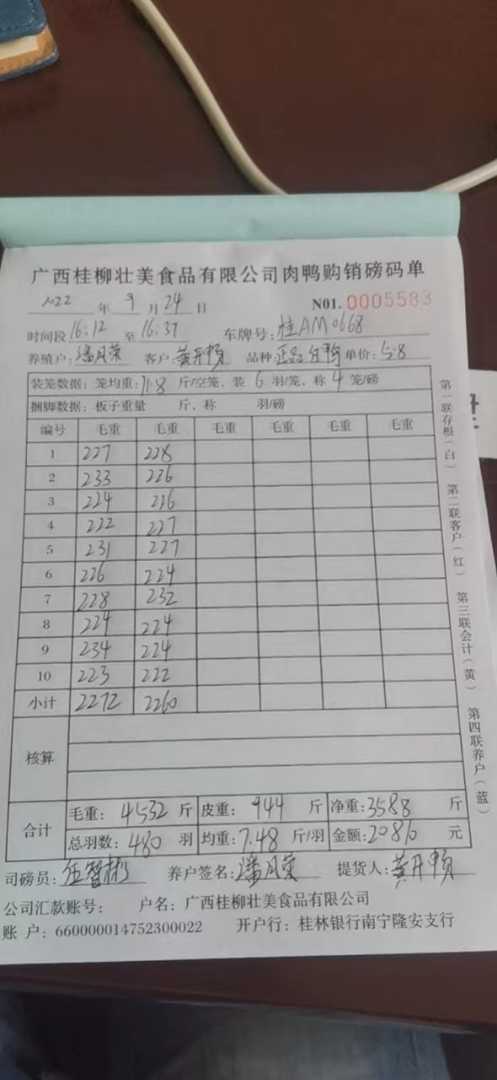 广西桂柳壮美食品有限公司肉鸭购销磅码单
2022 年 9 月 24 日 N01.0005583
时间段16:12 至16:37 车牌号:桂AM0668
养殖户:潘月荣 客户:黄开 品种 正品 单价:5.8
装笼数据:笼均重:11.8 斤/空笼、装 6 羽/笼、称 4 笼/磅
捆脚数据:板子重量 斤、称 羽/磅
编号 毛重 毛重 毛重 毛重 毛重 毛重
1 227 228
2 233 226
3 224 226
4 222 227
5 231 227
6 226 224
7 228 232
8 224 224
9 234 224
10 223 222
小计 2272 2260
核算
合计
毛重:4532 斤 皮重:944 斤 净重:3588 斤
总羽数:480 羽 均重:7.48 斤/羽 金额:20810 元
司磅员:伍智彬 养户签名:潘月荣 提货人:黄开
公司汇款账号: 户名:广西桂柳壮美食品有限公司
账 户:660000014752300022 开户行:桂林银行南宁隆安支行
第一联存根(白) 第二联客户(红) 第三联会计(黄) 第四联养户(蓝)